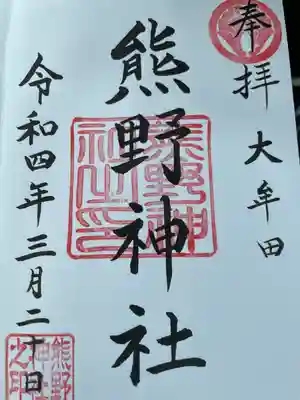 奉拝
大牟田
熊野神社
熊野神
社之印
令和四年三月二十日
熊野
神社
之印